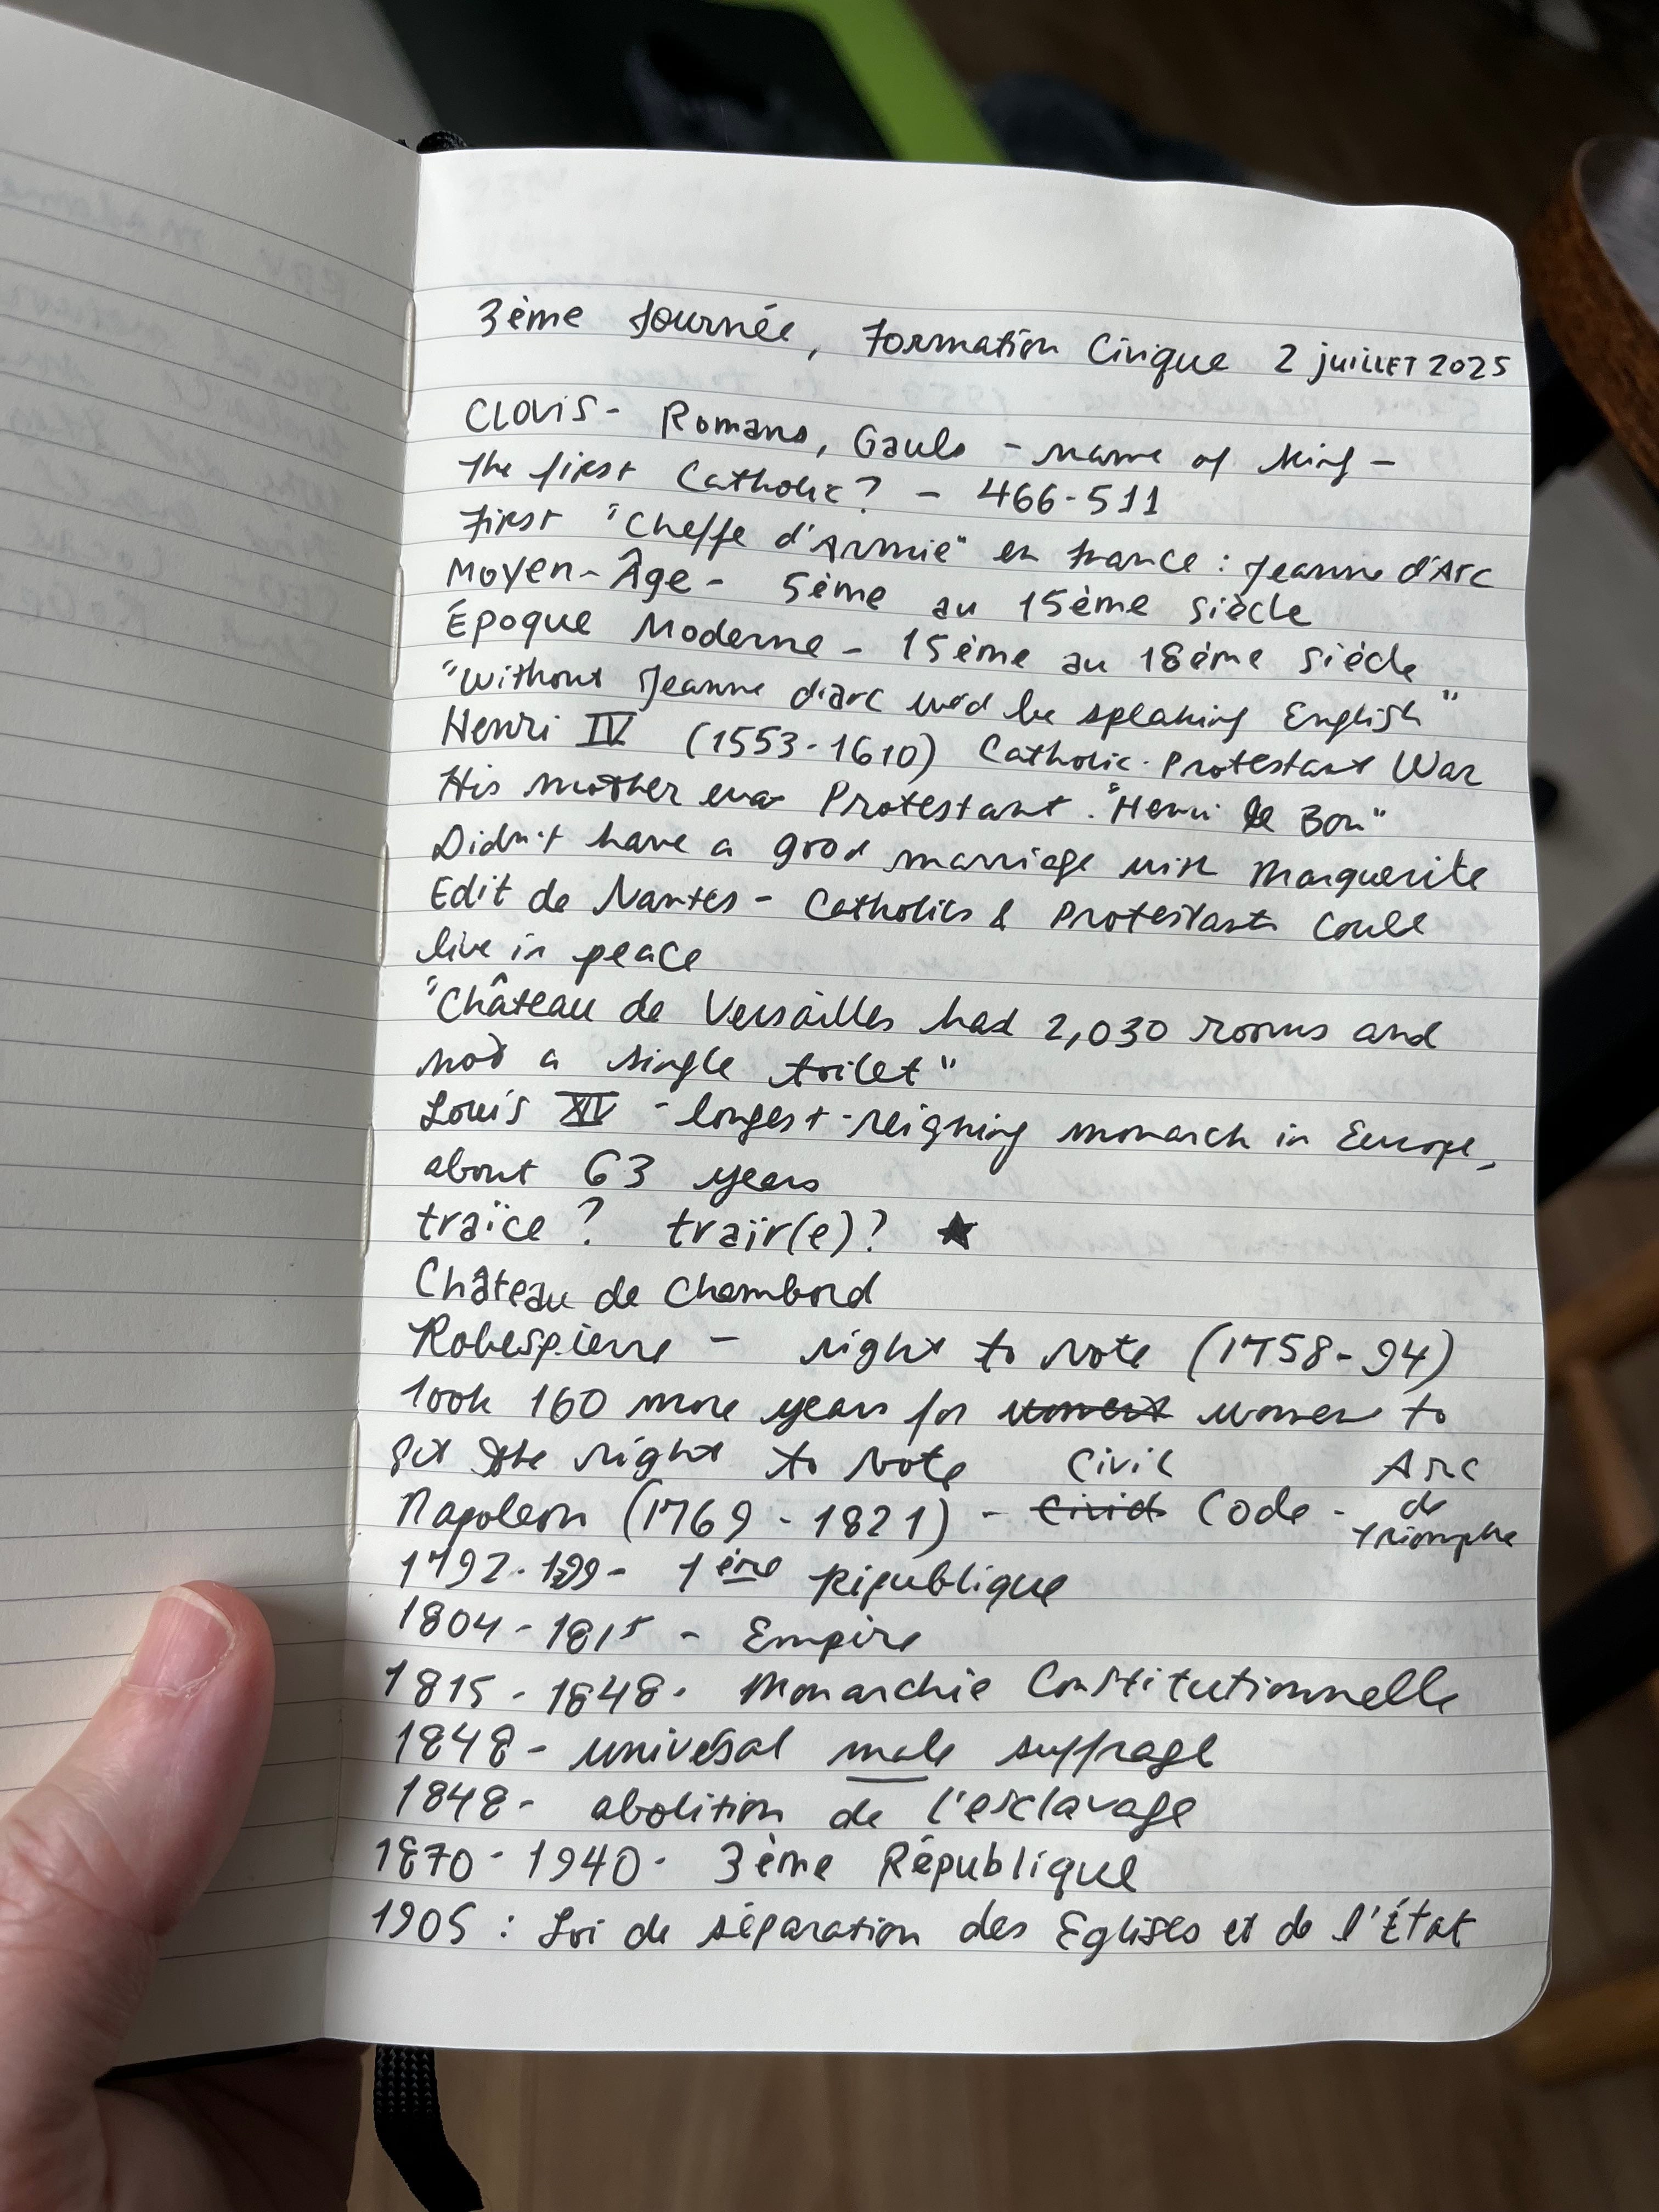 3ème Journée, Formation Civique 2 juillet 2025
CLOVIS - Romans, Gauls - name of King -
The first Catholic? - 466-511
First "Cheffe d'Armie" en France : Jeanne d'Arc
Moyen-Âge - 5ème au 15ème siècle
Époque Moderne - 15ème au 18ème siècle
"Without Jeanne d'arc we'd be speaking English"
Henri IV (1553-1610) Catholic-Protestant War
His mother was Protestant. "Henri le Bon"
Didn't have a good marriage with Marguerite
Edit de Nantes - Catholics & Protestants could
live in peace
"Château de Versailles had 2,030 rooms and
not a single toilet"
Louis XIV - longest-reigning monarch in Europe,
about 63 years
traïce? traïr(e)? ★
Château de Chambord
Robespierre - right to vote (1758-94)
Took 160 more years for women to
get the right to vote Civil Arc
Napoleon (1769-1821) - Code - de
Triomphe
1792-1799 - 1ère République
1804-1815 - Empire
1815-1848- Monarchie Constitutionnelle
1848- univesal male suffrage
1848- abolition de l'esclavage
1870-1940- 3ème République
1905 : Loi de séparation des Eglises et de l'État